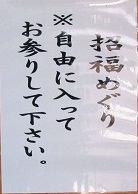 招福めぐり
※自由に入って
お参りして下さい。